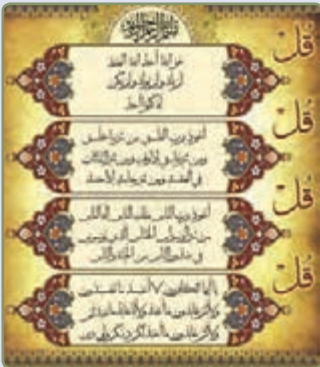 بسم الله الرحمن الرحيم
قل
هو الله أحد الله الصمد
لم يلد ولم يولد ولم يكن
له كفوا أحد
قل
أعوذ برب الفلق من شر ما خلق
ومن شر غاسق إذا وقب ومن شر النفاثات
في العقد ومن شر حاسد إذا حسد
قل
أعوذ برب الناس ملك الناس إله الناس
من شر الوسواس الخناس الذي يوسوس
في صدور الناس من الجنة والناس
قل
يا أيها الكافرون لا أعبد ما تعبدون
ولا أنتم عابدون ما أعبد ولا أنا عابد ما عبدتم
ولا أنتم عابدون ما أعبد لكم دينكم ولي دين